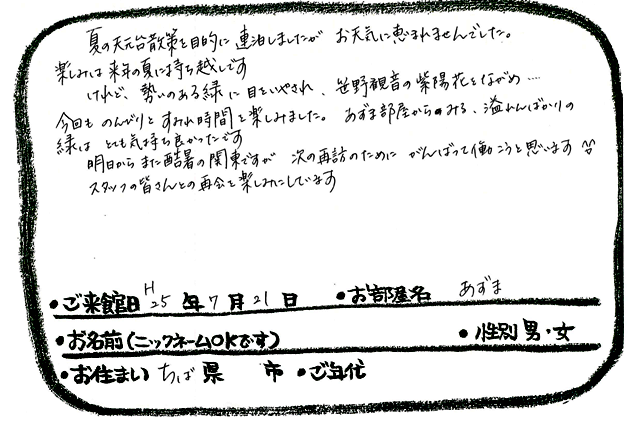 夏の天元台散策を目的に連泊しましたが お天気に恵まれませんでした。
楽しみは来年の夏に持ち越しです
けれど、勢いのある緑に目をいやされ、笹野観音の紫陽花をながめ…
今回も のんびりと すみれ時間を楽しみました。 あずま部屋からみる、溢れんばかりの
緑は とても気持ち良かったです
明日から また酷暑の関東ですが 次の再訪のために がんばって働こうと思います
スタッフの皆さんとの再会を楽しみにしています
・ご来館日 H25年7月21日 ・お部屋名 あずま
・お名前(ニックネームOKです) ・性別 男・女
・お住まい ちば県 市 ・ご年代